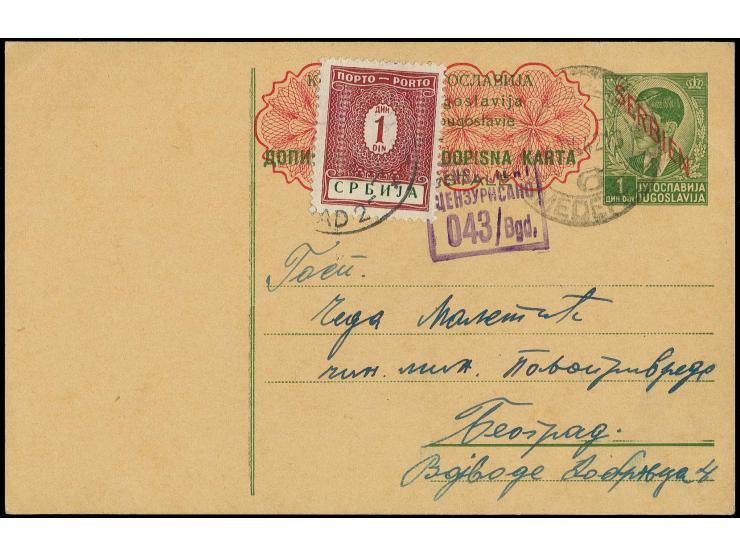 ПОРТО – PORTO
1
ДИН
DIN
СРБИЈА
ОСЛАВИЈА
goslavija
ougoslavie
ДОПИ
DOPISNA KARTA
SERBIEN
1
ДИН DIN
ЈУГОСЛАВИЈА
JUGOSLAVIJA
ЦЕНЗУРИСАНО
043/Bgd.
AD 2
MEDE
Госп.
Чеда Малетић
чин. мин. Пољопривреде
Београд.
Војводе Добрњца 4